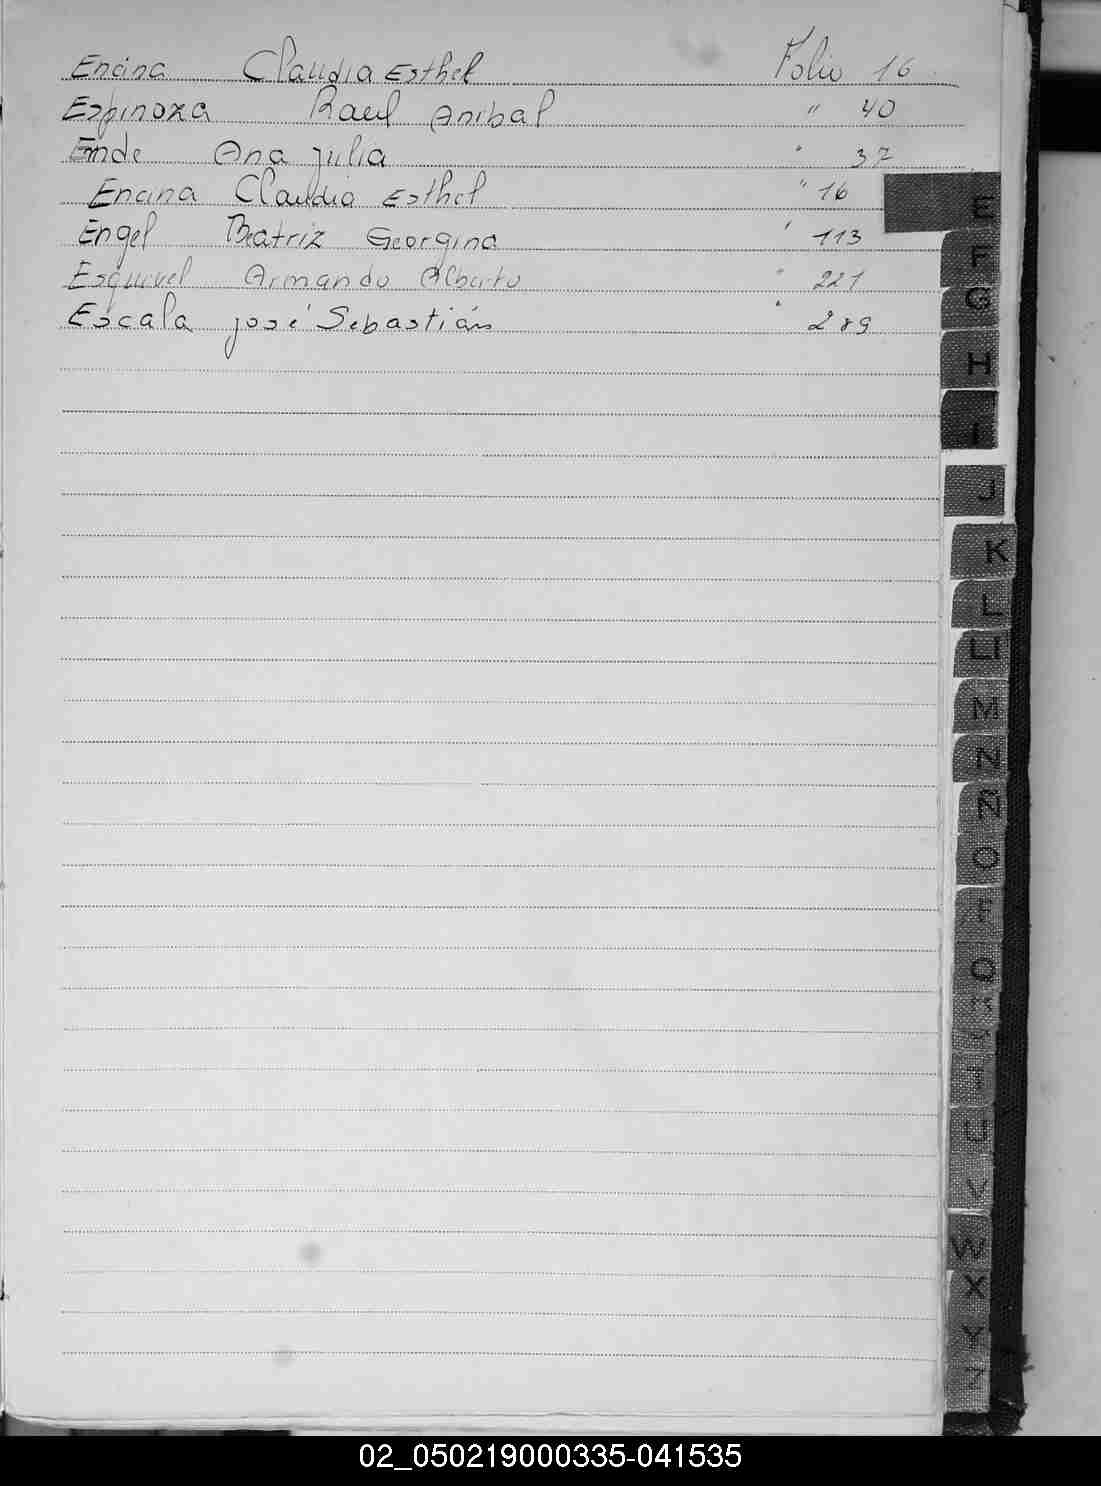 Encina Claudia Esthel Folio 16
Espinoza Raul Anibal " 40
Ende Ana Julia " 37
Encina Claudia Esthel " 16
Engel Beatriz Georgina " 113
Esquivel Armando Alberto " 221
Escala José Sebastián " 289
E
F
G
H
I
J
K
L
LL
M
N
Ñ
O
P
Q
T
U
V
W
X
Y
Z
02_050219000335-041535